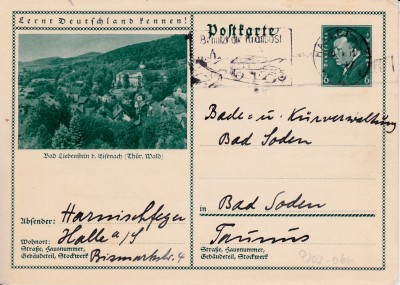 Lernt Deutschland kennen!
Bad Liebenstein b. Eisenach (Thür. Wald)
Absender: Harnischfeger
Wohnort: Halle a/S
Straße, Hausnummer,
Gebäudeteil, Stockwerk Bismarkstr. 4
Postkarte
6 6
Bade- u. Kurverwaltung
Bad Soden
in Bad Soden
Taunus
Straße, Hausnummer,
Gebäudeteil, Stockwerk